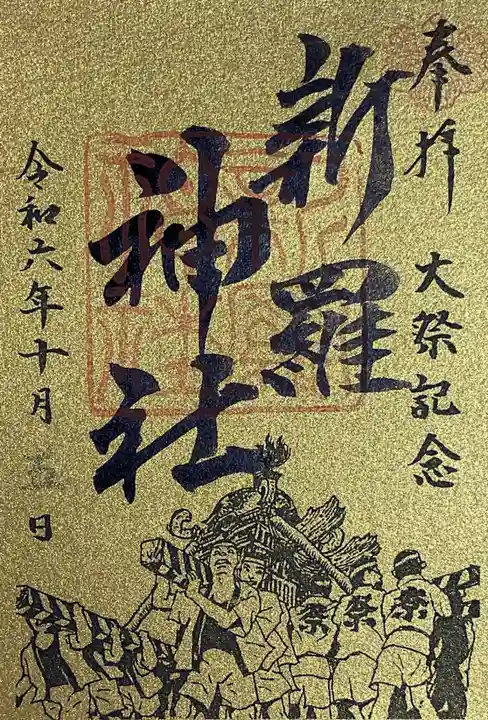 奉拝
大祭記念
新羅
神社
令和六年十月五日
祭
祭
祭